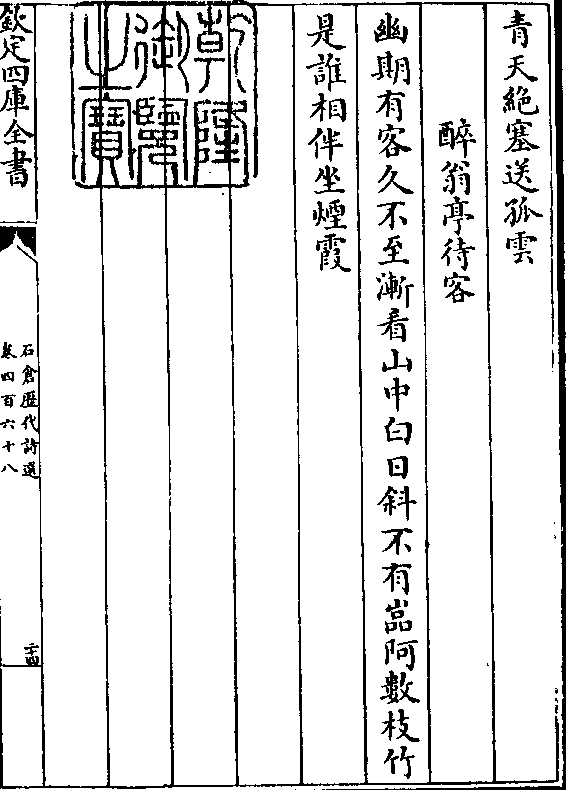 青天絶塞送孤雲
醉翁亭待客
幽期有客久不至漸看山中白日斜不有嵓阿數枝竹
是誰相伴坐煙霞
乾隆御覽之寶
欽定四庫全書
石倉歴代詩選
卷四百六十八
二十四